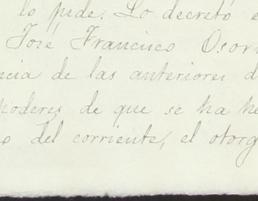 lo pide. Lo decretó e
José Francisco Osor
ncia de las anteriores d
poderes de que se ha he
s del corriente, el otorg